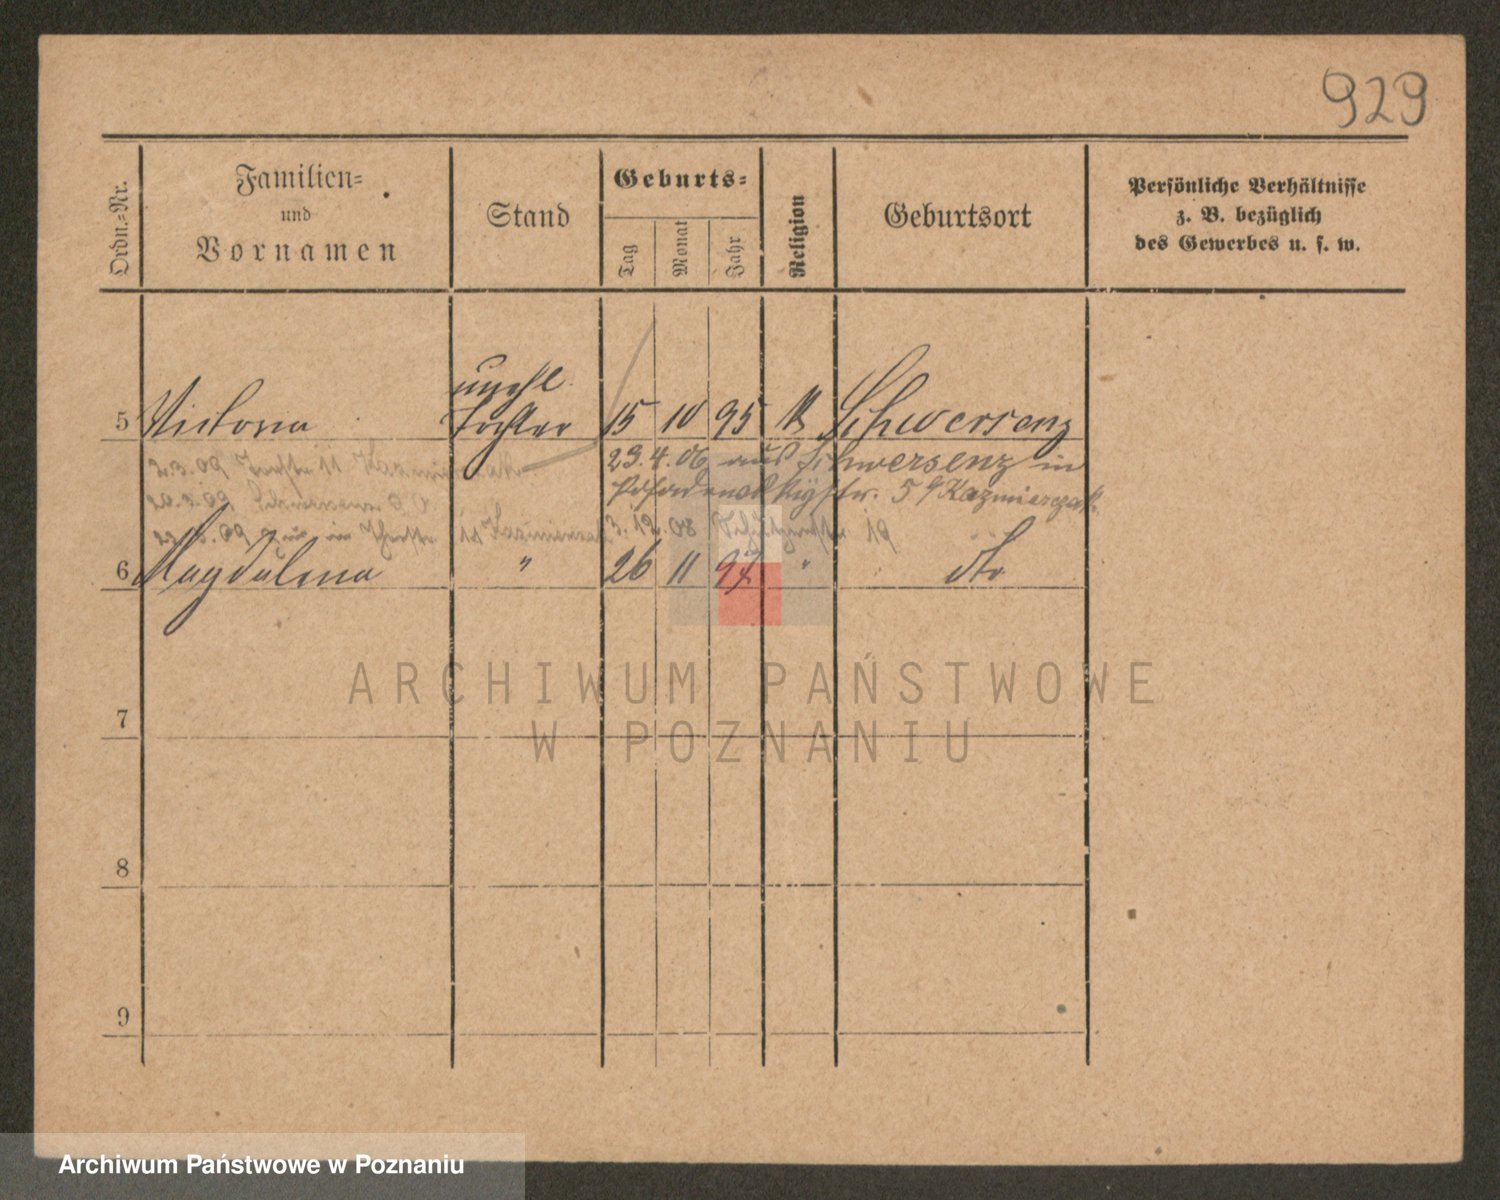 929
Ordn.=Nr.
Familien=
und
Vornamen
Stand
Geburts=
Tag
Monat
Jahr
Religion
Geburtsort
Persönliche Verhältnisse
z. B. bezüglich
des Gewerbes u. s. w.
unehl.
5 Victoria Tochter 15 10 95 K Schwersenz
2.3.09 11
23.4.06 aus Schwersenz in
str. 5 b/Kazmierczak
3.12.08 19
6 Magdalena " 26 11 97 " dto
7
8
9
ARCHIWUM PAŃSTWOWE
W POZNANIU
Archiwum Państwowe w Poznaniu